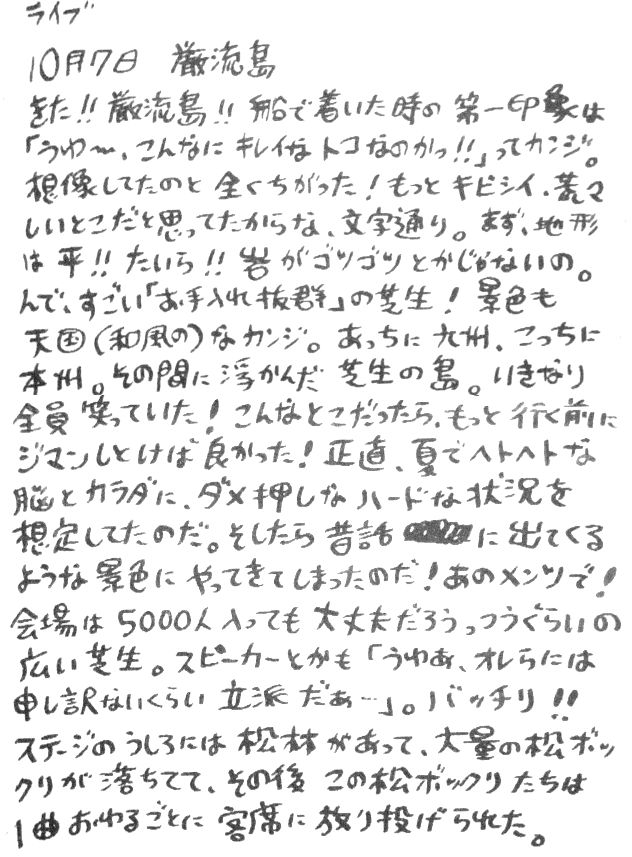 ライブ
10月7日 厳流島
きた!! 厳流島!! 船で着いた時の第一印象は
「うわ〜、こんなに キレイな トコなのかっ!!」ってカンジ。
想像してたのと 全くちがった!もっと キビシイ、荒々
しいとこだと思ってたからな、文字通り。まず、地形
は 平!! たいら!! 岩がゴツゴツとかじゃないの。
んで、すごい「お手入れ抜群」の芝生! 景色も
天国(和風の)なカンジ。 あっちに 九州、こっちに
本州。その間に 浮かんだ 芝生の島。いきなり
全員 笑っていた! こんなとこだったら、もっと 行く前に
ジマンしとけば 良かった! 正直、夏でヘトヘトな
脳と カラダに、ダメ押しな ハードな 状況を
想定してたのだ。そしたら 昔話 に出てくる
ような景色に やってきてしまったのだ!あのメンツで!
会場は 5000人 入っても 大丈夫だろうっつうぐらいの
広い 芝生。スピーカーとかも「うわあ、オレらには
申し訳ないくらい 立派 だぁ…」。バッチリ!!
ステージのうしろには 松林があって、大量の松ボッ
クリが 落ちてて、その後 この松ボックリたちは
1曲 おわるごとに 客席に 放り投げられた。